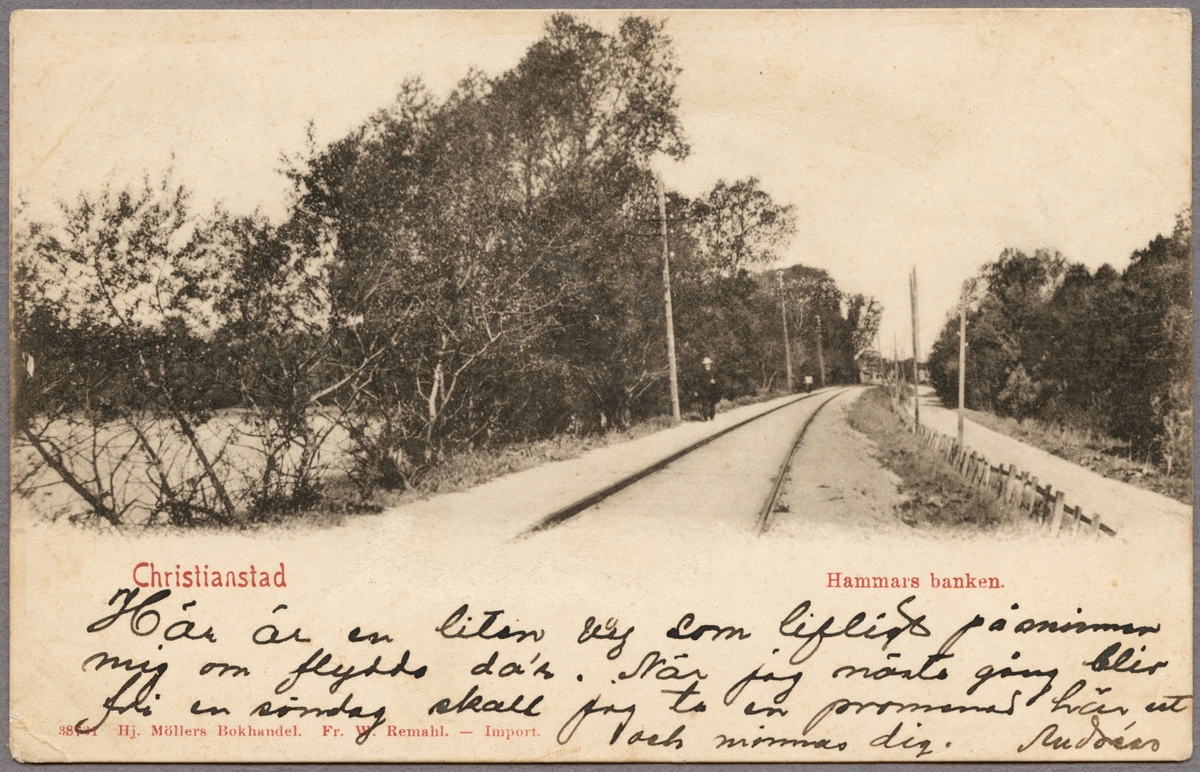 Christianstad
Hammars banken.
Här är en liten väg som lifligt påminner
mig om flydda da'r. När jag nästa gång blir
fri en söndag skall jag ta en promenad här ut
och minnas dig.
Hj. Möllers Bokhandel. Fr. W. Remahl. — Import.